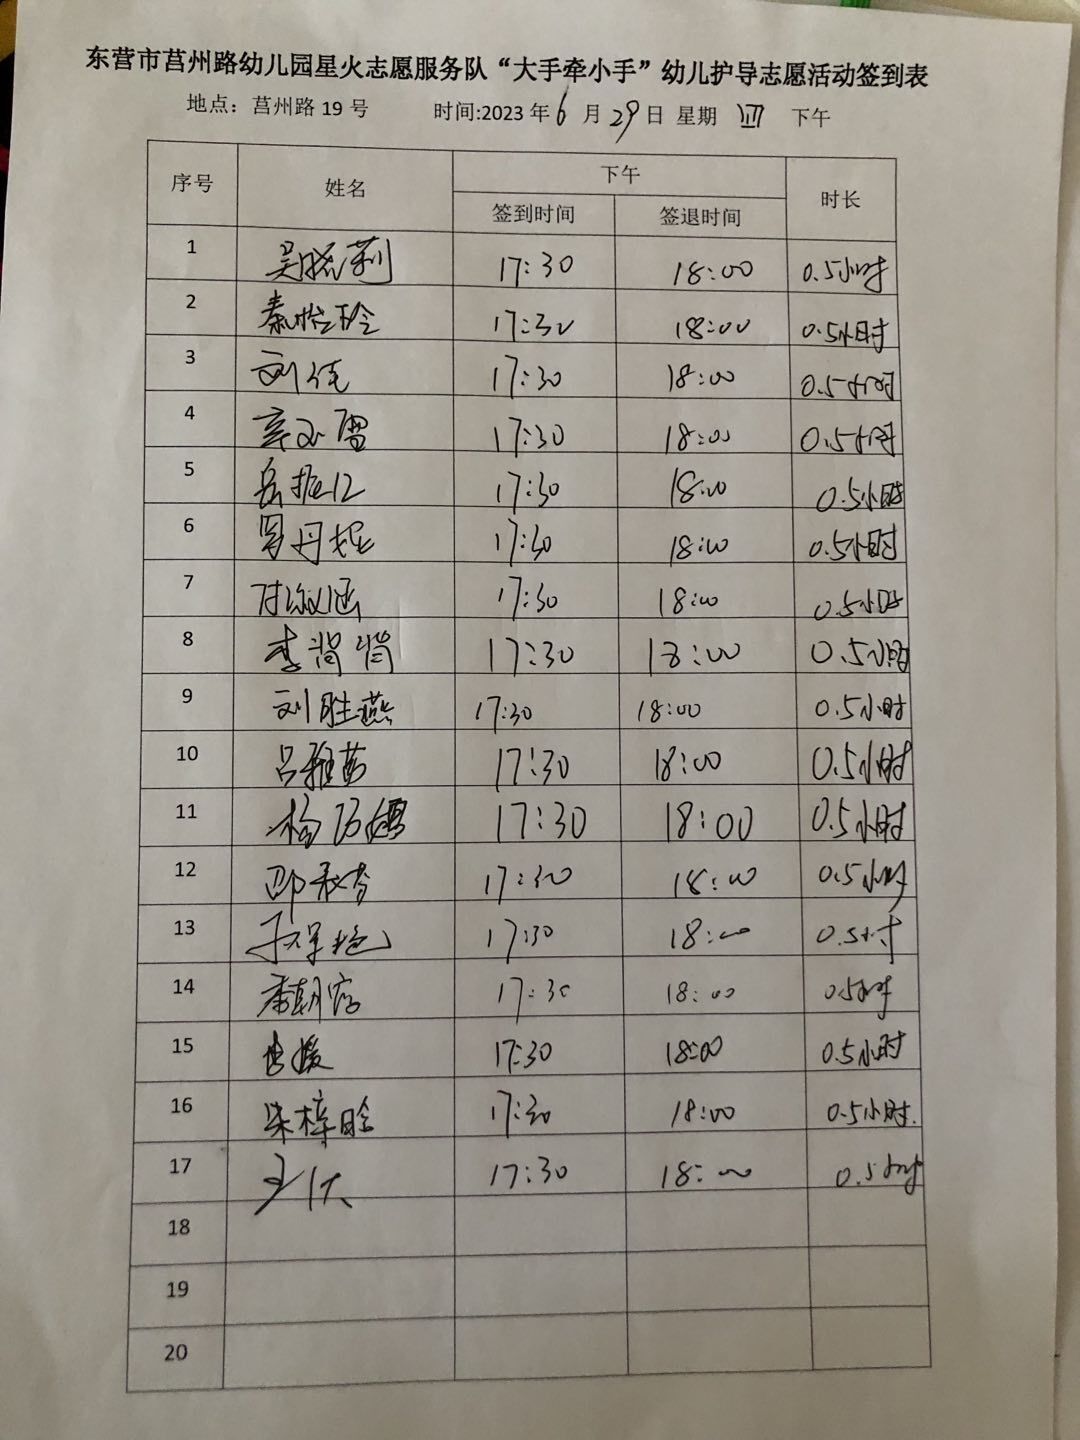 东营市莒州路幼儿园星火志愿服务队“大手牵小手”幼儿护导志愿活动签到表
地点：莒州路 19 号 时间:2023 年 6 月 29 日 星期 四 下午
序号 姓名 下午 时长
签到时间 签退时间
1 吴晓莉 17:30 18:00 0.5小时
2 秦怡玲 17:30 18:00 0.5小时
3 刘佳 17:30 18:00 0.5小时
4 17:30 18:00 0.5小时
5 岳振江 17:30 18:00 0.5小时
6 罗丹妮 17:30 18:00 0.5小时
7 17:30 18:00 0.5小时
8 李肖肖 17:30 18:00 0.5小时
9 刘胜燕 17:30 18:00 0.5小时
10 吕雅茹 17:30 18:00 0.5小时
11 17:30 18:00 0.5小时
12 17:30 18:00 0.5小时
13 17:30 18:00 0.5小时
14 17:30 18:00 0.5小时
15 17:30 18:00 0.5小时
16 朱梓晗 17:30 18:00 0.5小时.
17 17:30 18:00 0.5小时
18
19
20